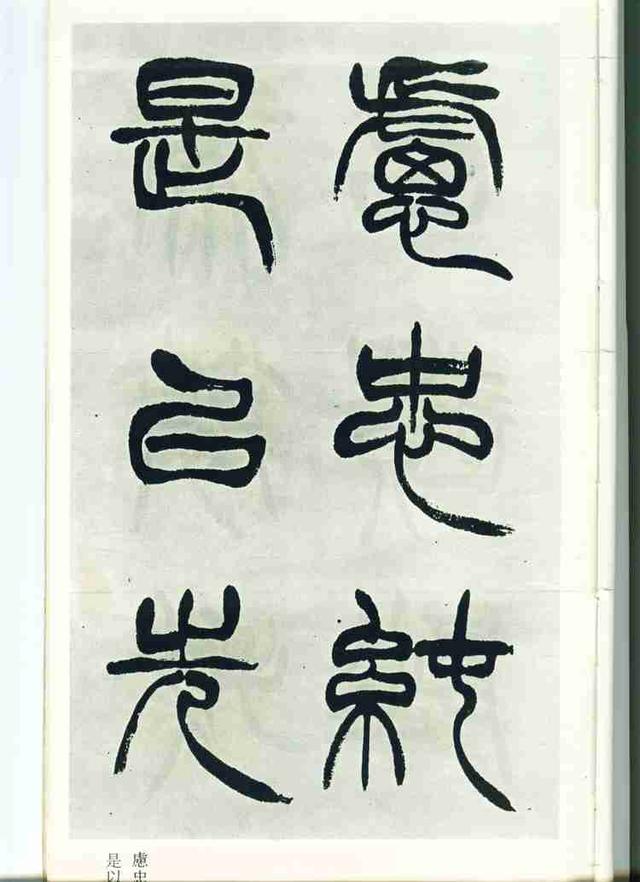 慮忠純
是㠯先
慮忠
是以